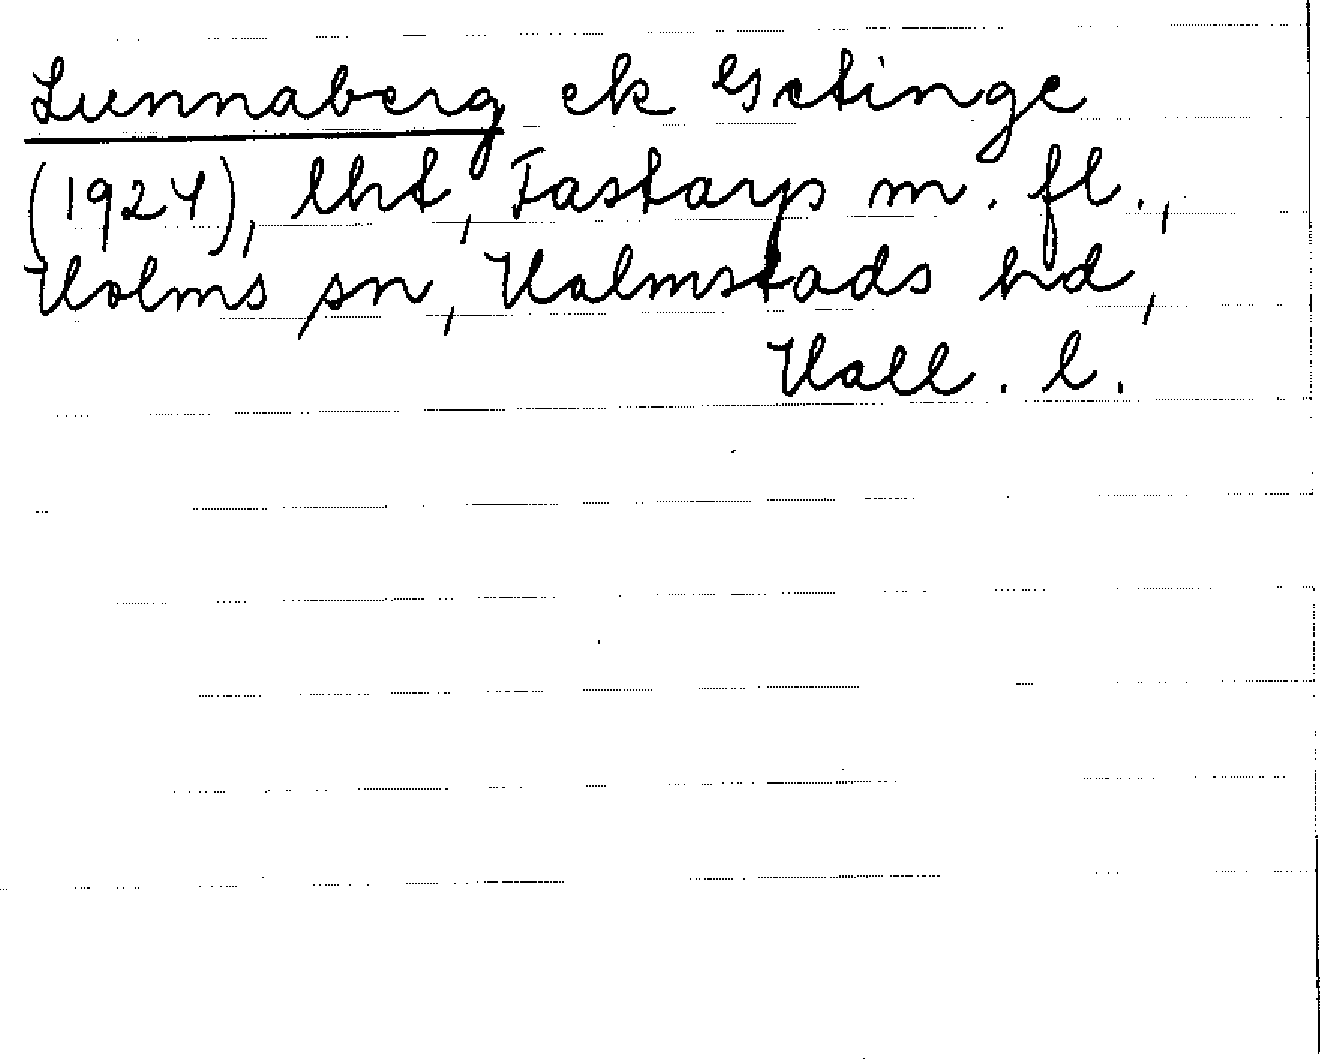 Lunnaberg ek Getinge
(1924), lht, Fastarp m. fl.,
Holms sn, Halmstads hd,
Hall. l.